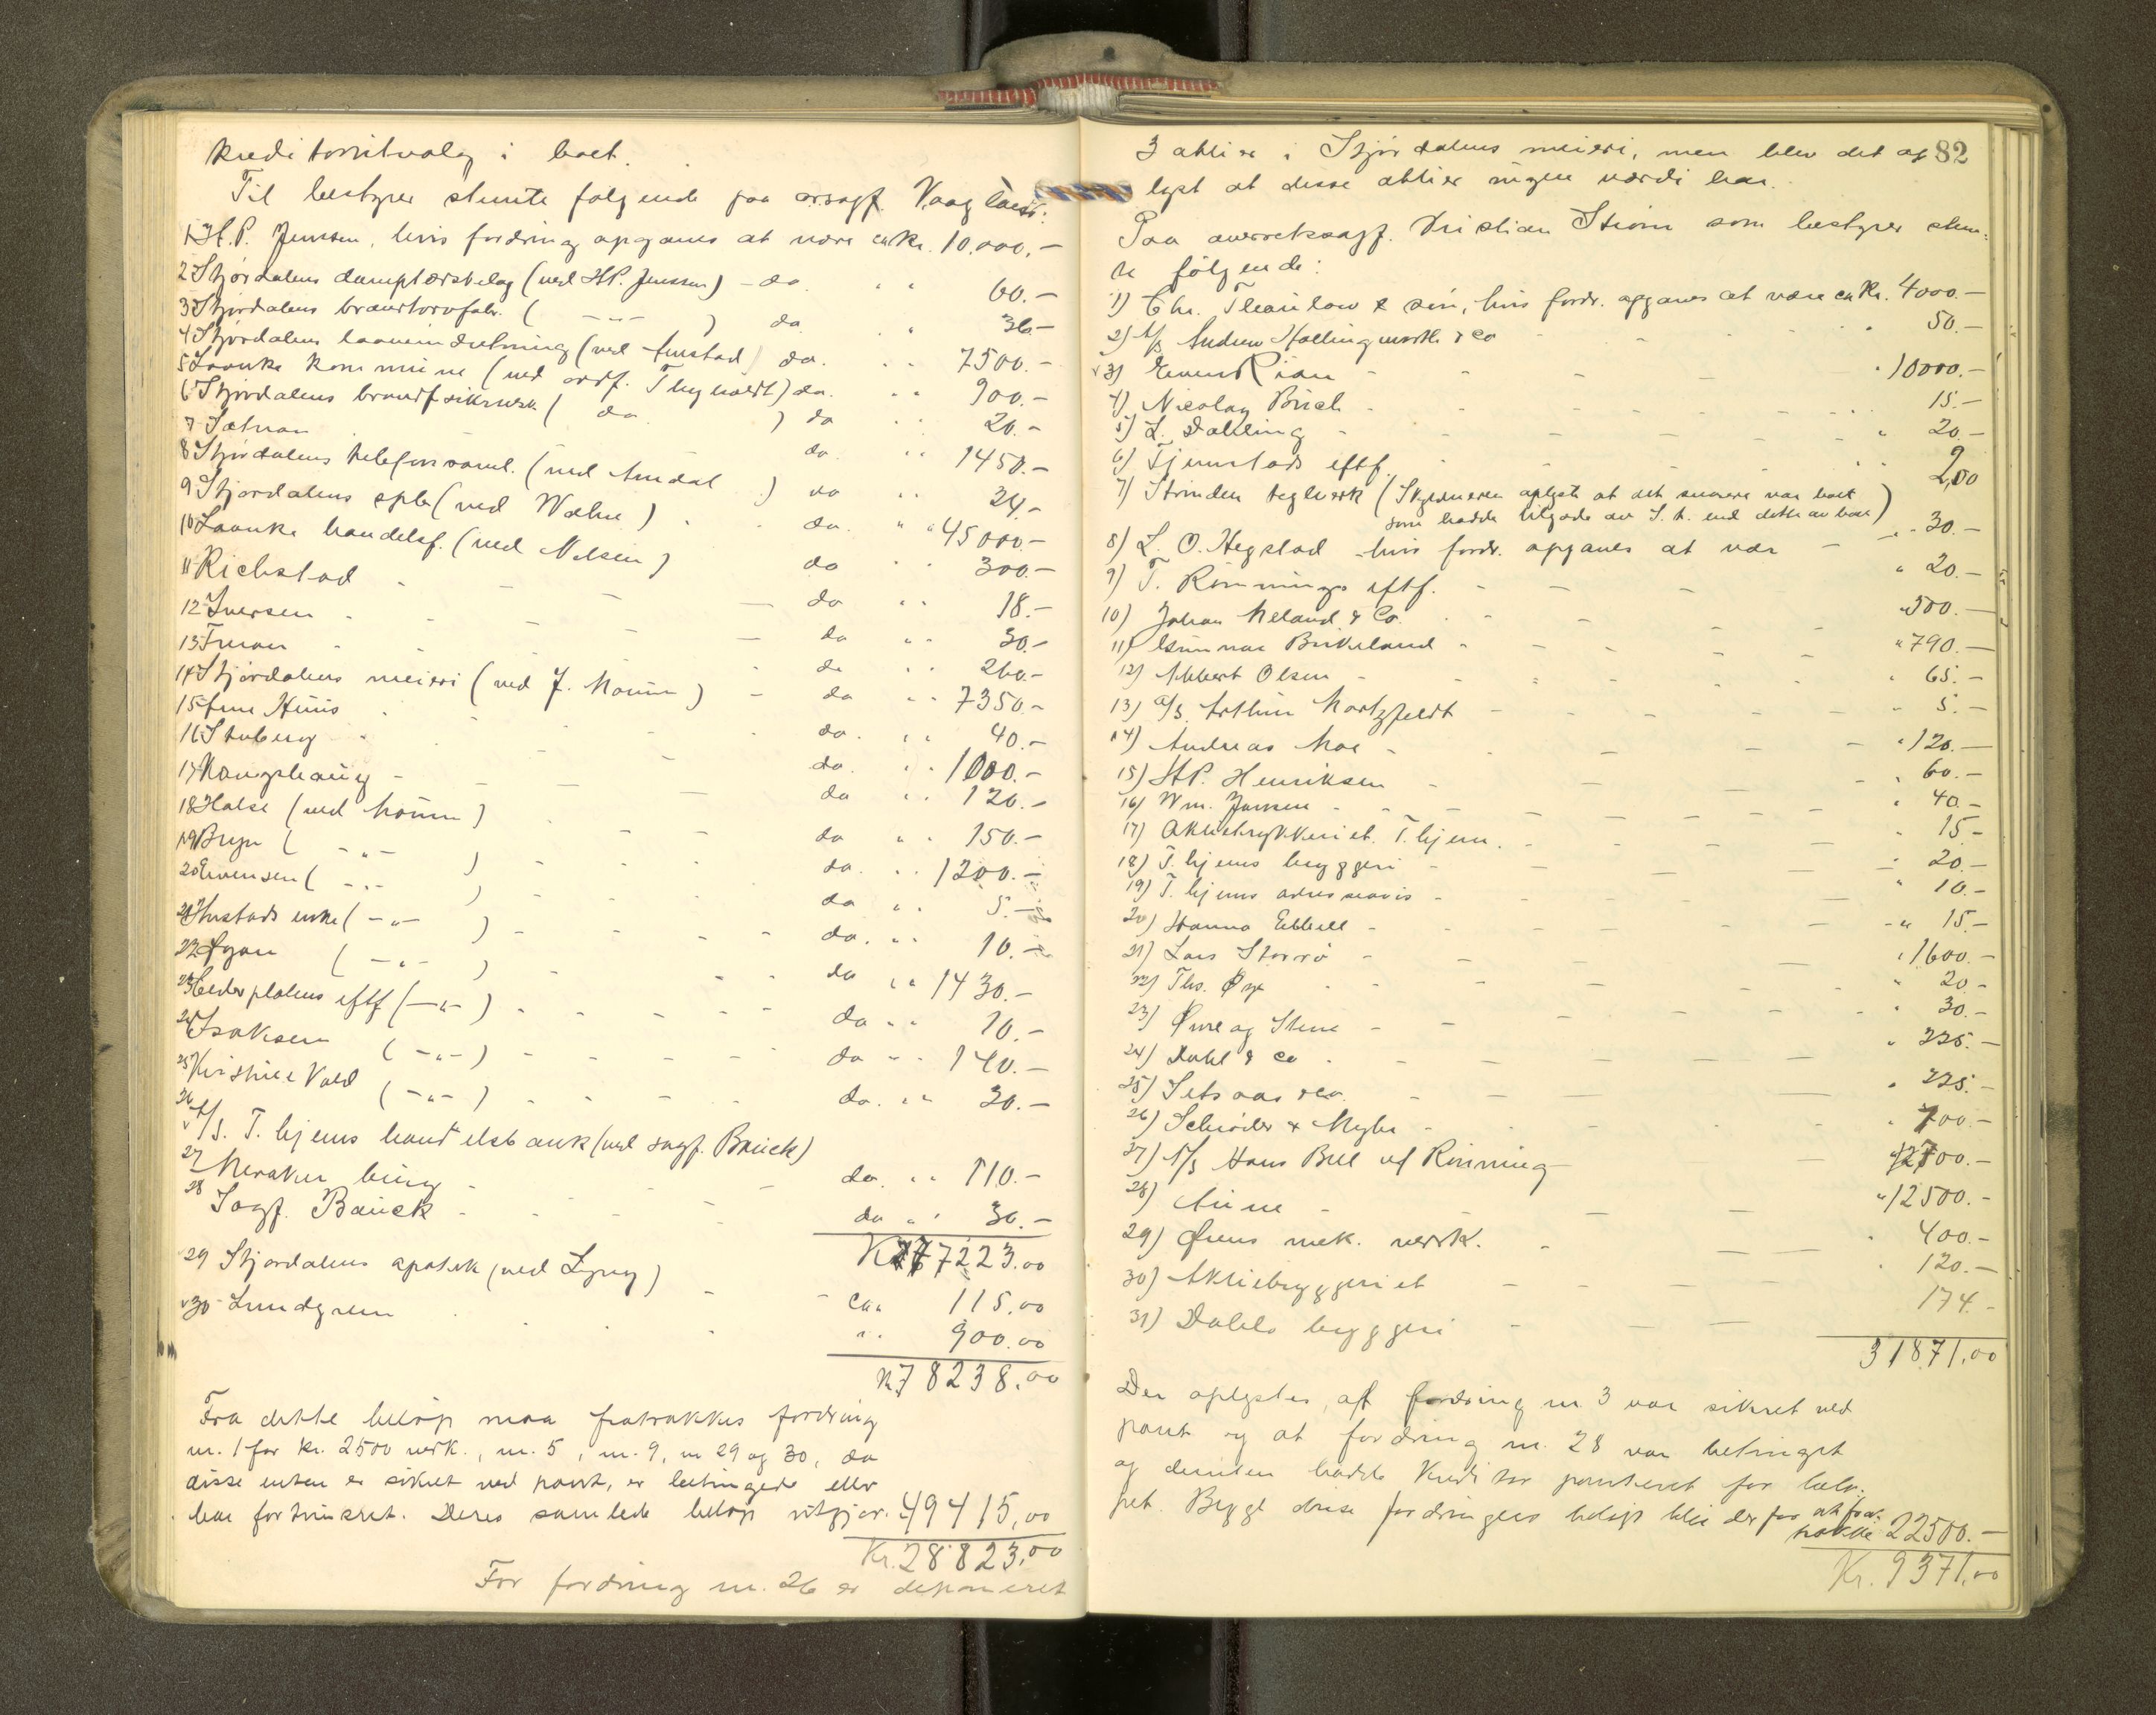 kreditorutvalg i boet.
Til bestyrer stemte følgende paa orsagf. Vaagland:
1 H.P. Jenssen, hvis fordring opgaves at være ca Kr. 10.000.-
2 Stjørdalens damptærskelag (ved H.P. Jenssen) - do. " " 60.-
3 Stjørdalens brændtorvfabr. ( -"- ) do " 36-
4 Stjørdalens laaneindretning (ved Amstad) do. " " 7500.-
5 Laanke kommune (ved ordf. Thyholdt) do. " " 900.-
6 Stjørdalens brandfsikrusk ( do ) do " " 20.-
7 Sætnan do. " " 1450.-
8 Stjørdalens telefonsaml. (ved Arndal ) do " " 24.-
9 Stjørdalens spb (ved Wæhre ) - do. " " 45000-
10 Laanke handelsf. (ved Nelsen) do " " 300.-
11 Richstad - - - - do " " 18.-
12 Iversen - - - - do " " 30.-
13 Fruan - - - - do " " 260.-
14 Stjørdalens meieri (ved J. Moum ) - do " " 7350.-
15 Arne Huus do. " " 40.-
16 Stuberg do. " " 1000.-
17 Kongshaug - - - - do " " 120.-
18 Halse (ved Moum ) - - do " " 150.-
19 Bryn ( -"- ) - - - do. " " 1200.-
20 Evensen ( -"- ) - - - do " " 5.-
21 Hustads enke ( -"- ) - - - do. " " 10.-
22 Øyan ( -"- ) - - do " " 1430.-
23 Cederplatens eftf (-"- ) - - - do " " 10.-
24 Isaksen ( -"- ) - - - do " " 140.-
25 Kristine Vold ( -"- ) - - - do. " " 30.-
26 A/S. T.hjems handelsbank (ved sagf. Bauck)
27 Meraker brug - - do. " " 110.-
28 Sagf. Bauck - - - do " " 30.-
Kr 77223.00
29 Stjørdalens apotek (ved Lyng) - - ca. 115.00
30 Lundgreen " " 900.00
Kr 78238.00
Fra dette beløp maa fratrækkes fordring
nr. 1 for kr. 2500 verk., nr. 5, nr. 9, nr 29 og 30, da
disse enten er sikret ved pant, er betingede eller
har fortrinsret. Deres samlede beløp utgjør. 49415,00
Kr. 28823,00
For fordring nr. 26 er deponeret
82
3 aktier i Stjørdalens meieri, men blev det op
lyst at disse aktier ingen værdi har.
Paa overretssagf. Kristian Strøm som bestyrer stem:
te følgende:
1) Chr. Thaulow & søn, hvis fordr. opgaves at være ca Kr. 4000.-
2) A/S Andrew Hollingworth & co - - - " 50.-
3) Even Rian - - - - " 10000.-
4) Nicolay Buch - - - - " 15.-
5) L. Dahling - - - - " 20.-
6) Tjernstads eftf. - - - " 2,00
7) Strinden teglverk (Skyldneren oplyste at det senere var bort
som hadde tilgode av S. h. end dette av ham)
8) L. O. Hegstad - hvis fordr. opgaves at være - " 30.-
9) T. Rønnings eftf. - - - " 20.-
10) Johan Meland & Co. - - - " 500.-
11) Gunnar Birkeland - - - " 790.-
12) Albert Olsen - - - " 65.-
13) a/s. Arthur Mortzfeldt - - - " 5.-
14) Andreas Moe - - - " 120.-
15) H.P. Henriksen - - - " 60.-
16) Wm. Jansen - - - " 40.-
17) Aktietrykkeriet. T.hjem. - - - " 15-
18) T.hjems bryggeri - - - " 20.-
19) T.hjems adresseavis - - - " 10.-
20) Hanna Ebbell - - - " 15.-
21) Lars Storrø - - - " 1600.-
22) Ths. Øye - - - " 20.-
23) Øwre og Stene - - - " 30.-
24) Dahl & Co - - - " 225.-
25) Setsaas & co. - - - " 225.-
26) Schrøder & Myhre - - - " 700.-
27) A/S Hans Bull uf Rønning - " 100.-
28) Aune - - - " 12500.-
29) Ørens mek. verk. - - - " 400.-
30) Aktiebryggeriet - - - " 120.-
31) Dahls bryggeri - - - 174.-
31871.00
Der oplystes, at fordring nr. 3 var sikret ved
pant og at fordring nr. 28 var betinget
og desuten hadde kreditor panteret for belø:
pet. Begge disse fordringers beløp blir derfor at fra:
trække 22500.-
Kr. 9371,00